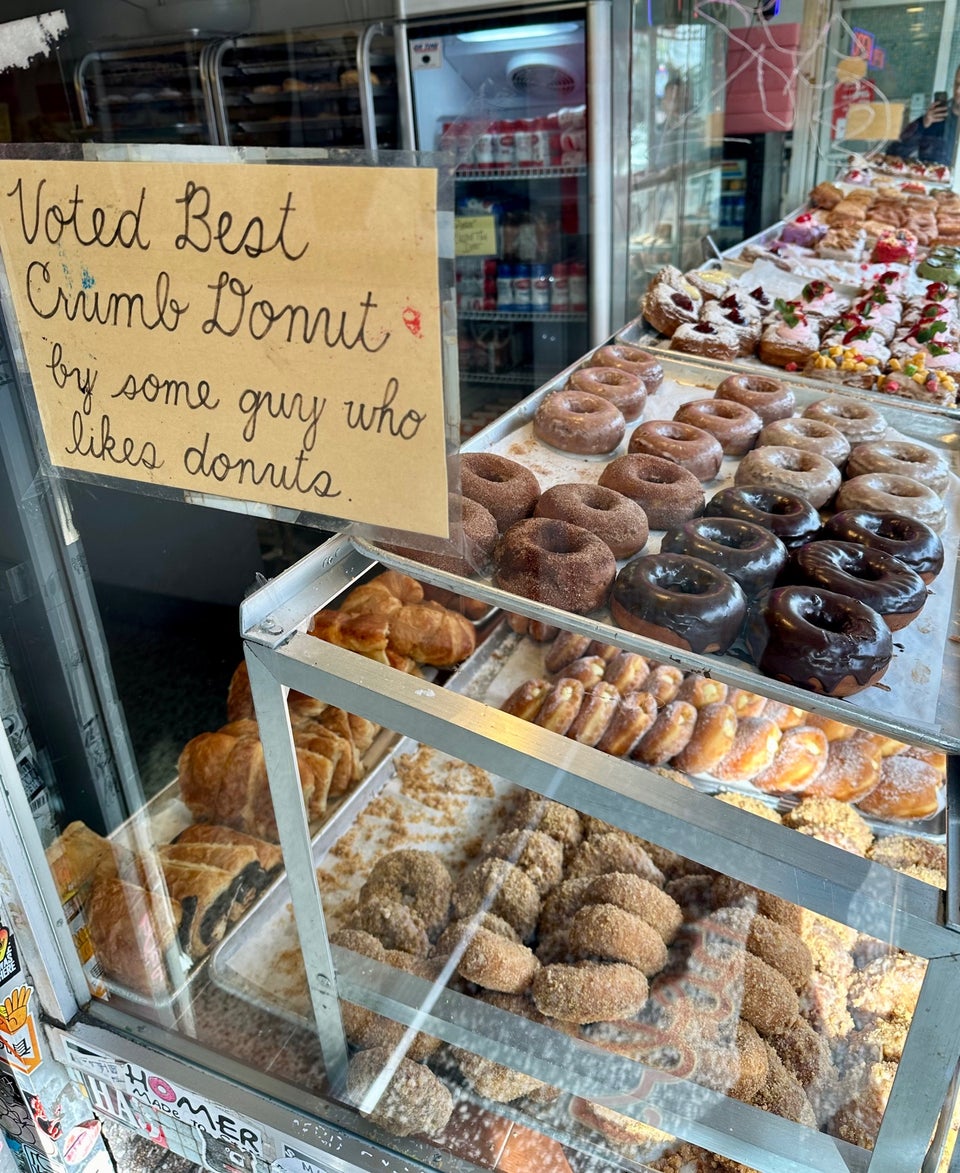 Voted Best
Crumb Donut
by some guy who
likes donuts.
HOMER
MADE